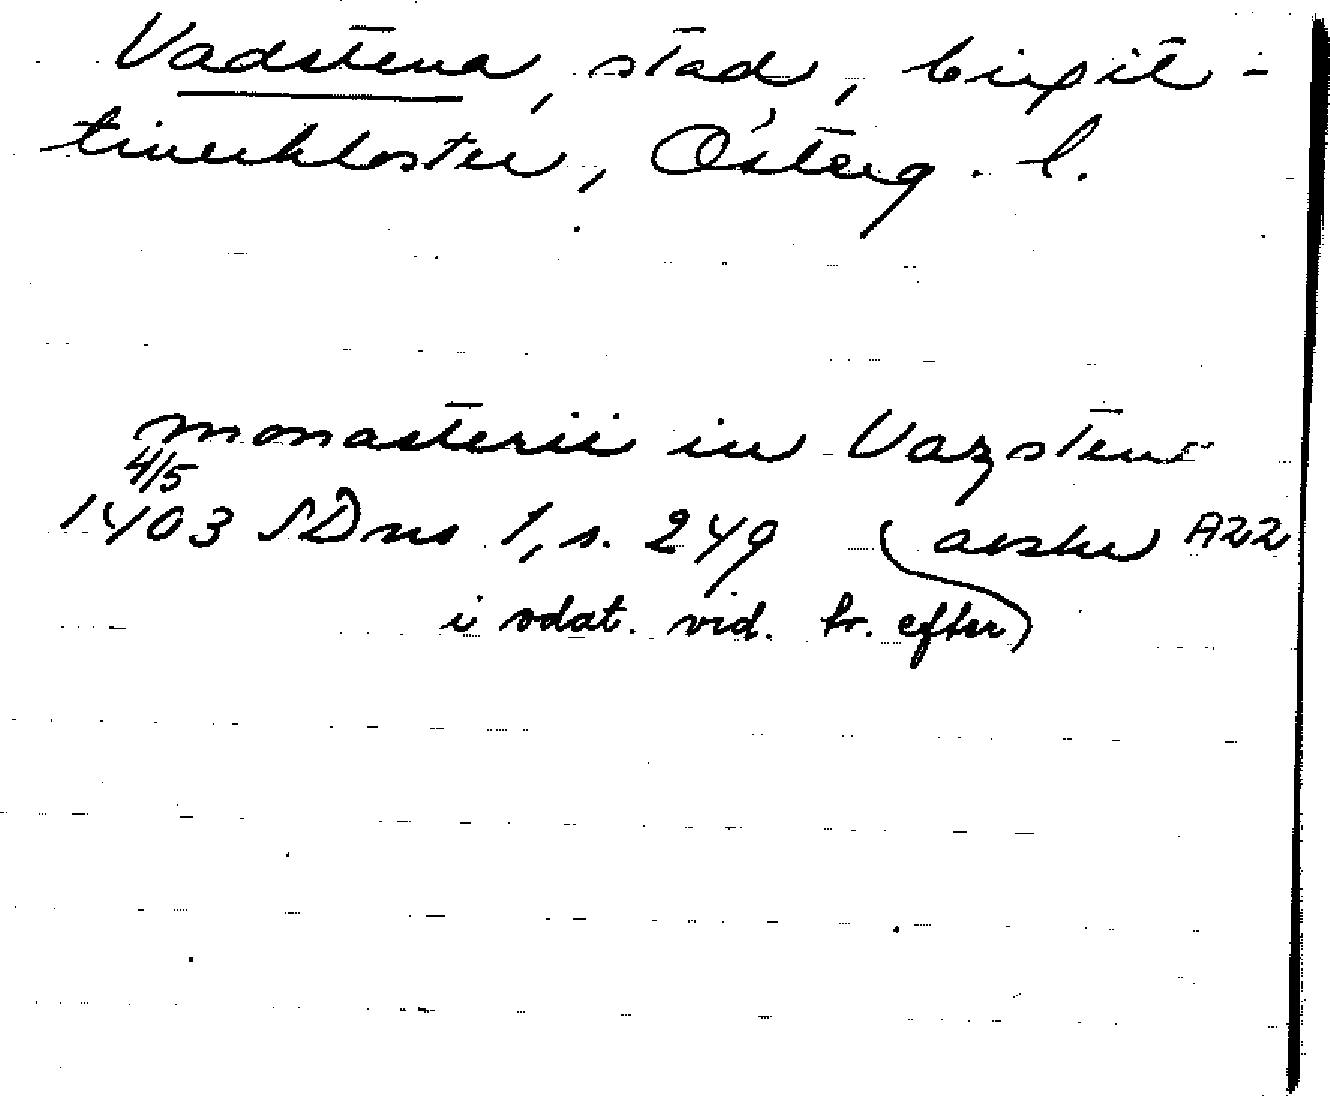 Vadstena, stad, birgit-
tinerkloster, Österg. l.
monasterii in Vazstena
4/5
1403 SDns 1, s. 249 (avskr A22
i odat. vid. br. efter)